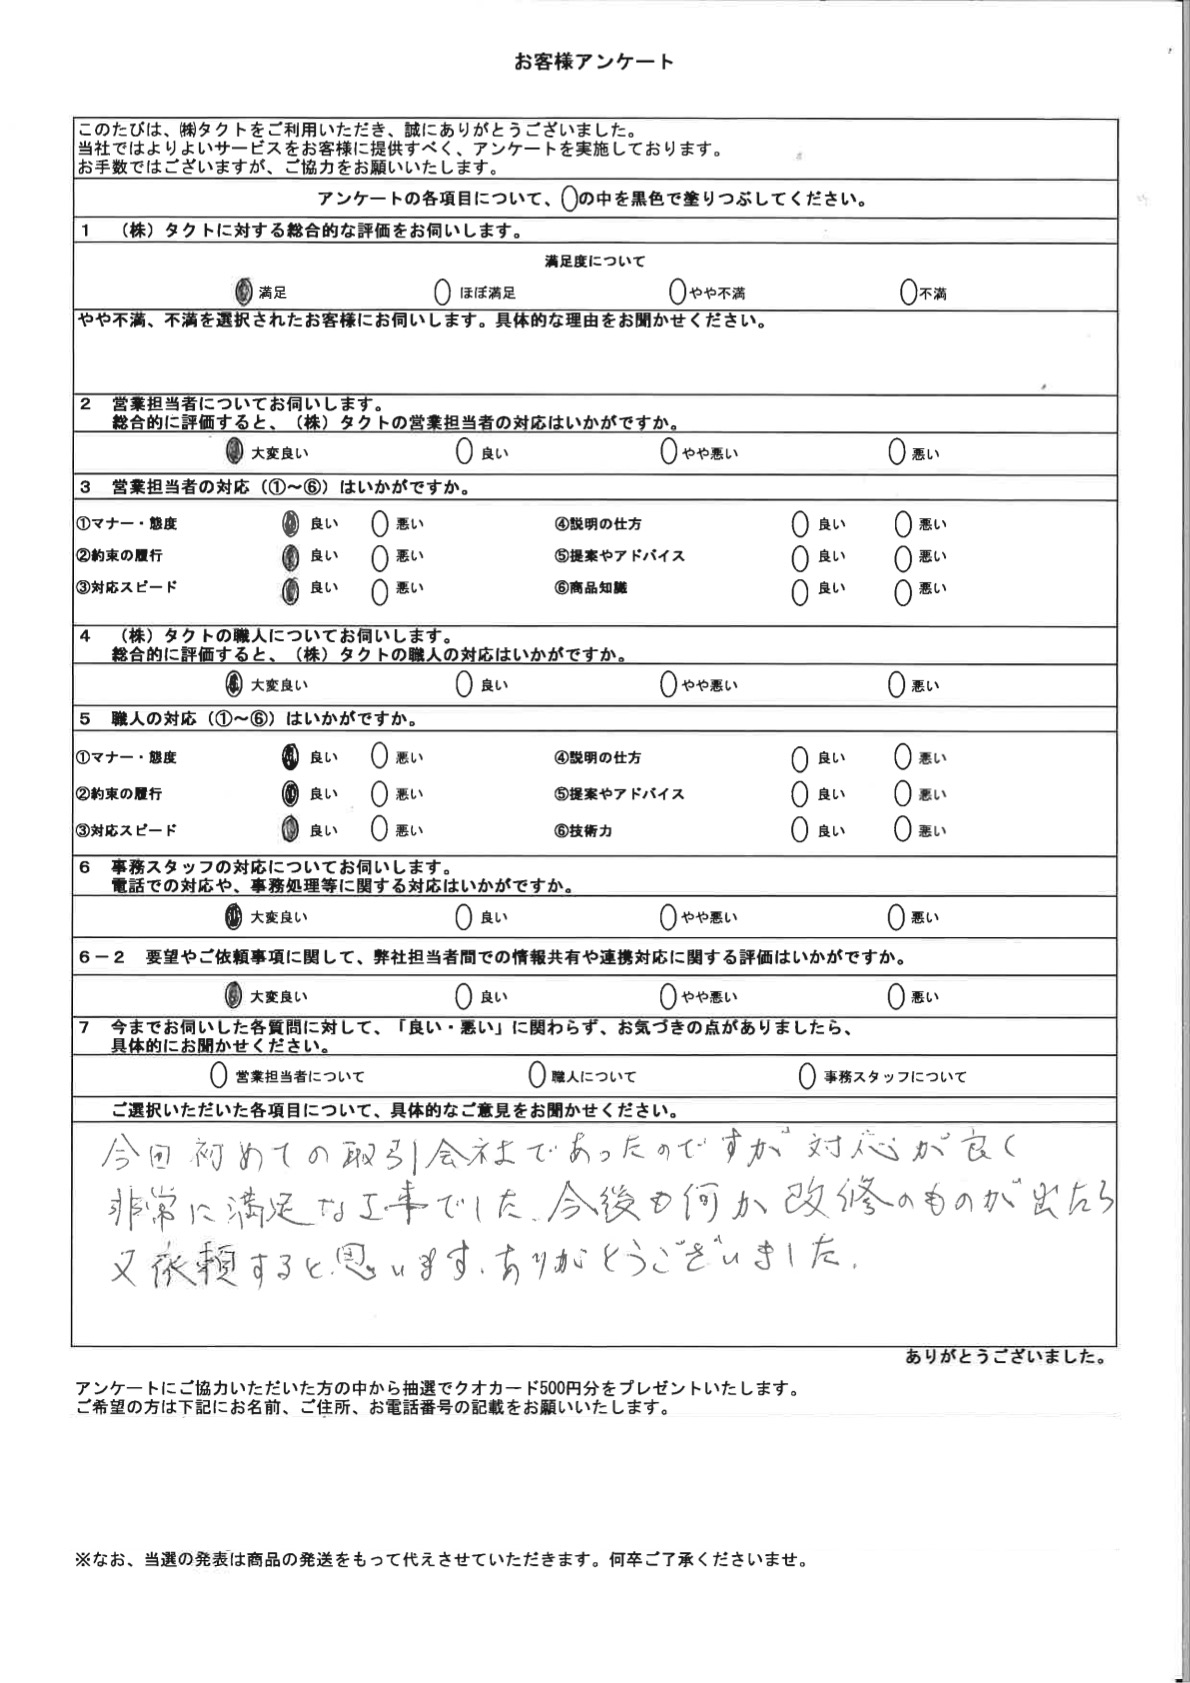 お客様アンケート
このたびは、㈱タクトをご利用いただき、誠にありがとうございました。
当社ではよりよいサービスをお客様に提供すべく、アンケートを実施しております。
お手数ではございますが、ご協力をお願いいたします。
アンケートの各項目について、○の中を黒色で塗りつぶしてください。
1 （株）タクトに対する総合的な評価をお伺いします。
満足度について
満足 ほぼ満足 やや不満 不満
やや不満、不満を選択されたお客様にお伺いします。具体的な理由をお聞かせください。
2 営業担当者についてお伺いします。
総合的に評価すると、（株）タクトの営業担当者の対応はいかがですか。
大変良い 良い やや悪い 悪い
3 営業担当者の対応（①～⑥）はいかがですか。
①マナー・態度 良い 悪い ④説明の仕方 良い 悪い
②約束の履行 良い 悪い ⑤提案やアドバイス 良い 悪い
③対応スピード 良い 悪い ⑥商品知識 良い 悪い
4 （株）タクトの職人についてお伺いします。
総合的に評価すると、（株）タクトの職人の対応はいかがですか。
大変良い 良い やや悪い 悪い
5 職人の対応（①～⑥）はいかがですか。
①マナー・態度 良い 悪い ④説明の仕方 良い 悪い
②約束の履行 良い 悪い ⑤提案やアドバイス 良い 悪い
③対応スピード 良い 悪い ⑥技術力 良い 悪い
6 事務スタッフの対応についてお伺いします。
電話での対応や、事務処理等に関する対応はいかがですか。
大変良い 良い やや悪い 悪い
6－2 要望やご依頼事項に関して、弊社担当者間での情報共有や連携対応に関する評価はいかがですか。
大変良い 良い やや悪い 悪い
7 今までお伺いした各質問に対して、「良い・悪い」に関わらず、お気づきの点がありましたら、
具体的にお聞かせください。
営業担当者について 職人について 事務スタッフについて
ご選択いただいた各項目について、具体的なご意見をお聞かせください。
今回初めての取引会社であったのですが対応が良く
非常に満足な工事でした、今後も何か改修のものが出たら
又依頼すると思います、ありがとうございました。
ありがとうございました。
アンケートにご協力いただいた方の中から抽選でクオカード500円分をプレゼントいたします。
ご希望の方は下記にお名前、ご住所、お電話番号の記載をお願いいたします。
※なお、当選の発表は商品の発送をもって代えさせていただきます。何卒ご了承くださいませ。